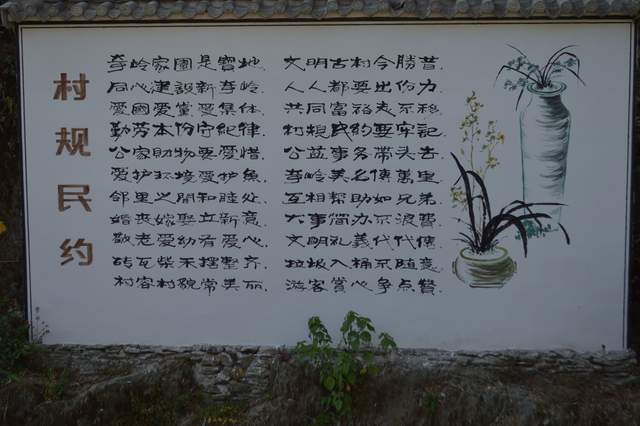 村规民约
奇岭家園是寶地. 文明古村今勝昔.
同心建設新奇岭. 人人都要出份力.
愛國愛黨愛集体. 共同富裕志不移.
勤劳本份守紀律. 村規民約要牢記.
公家財物要愛惜. 公益事务带头去.
爱护环境爱护魚. 奇岭美名傳萬里.
邻里之間和睦处. 互相帮助如兄弟.
婚丧嫁娶立新意. 大事简办不浪費.
敬老爱幼有爱心. 文明礼義代代傳.
砖瓦柴禾摆整齐. 垃圾入桶不随意.
村容村貌常美丽. 游客賞心争点贊.